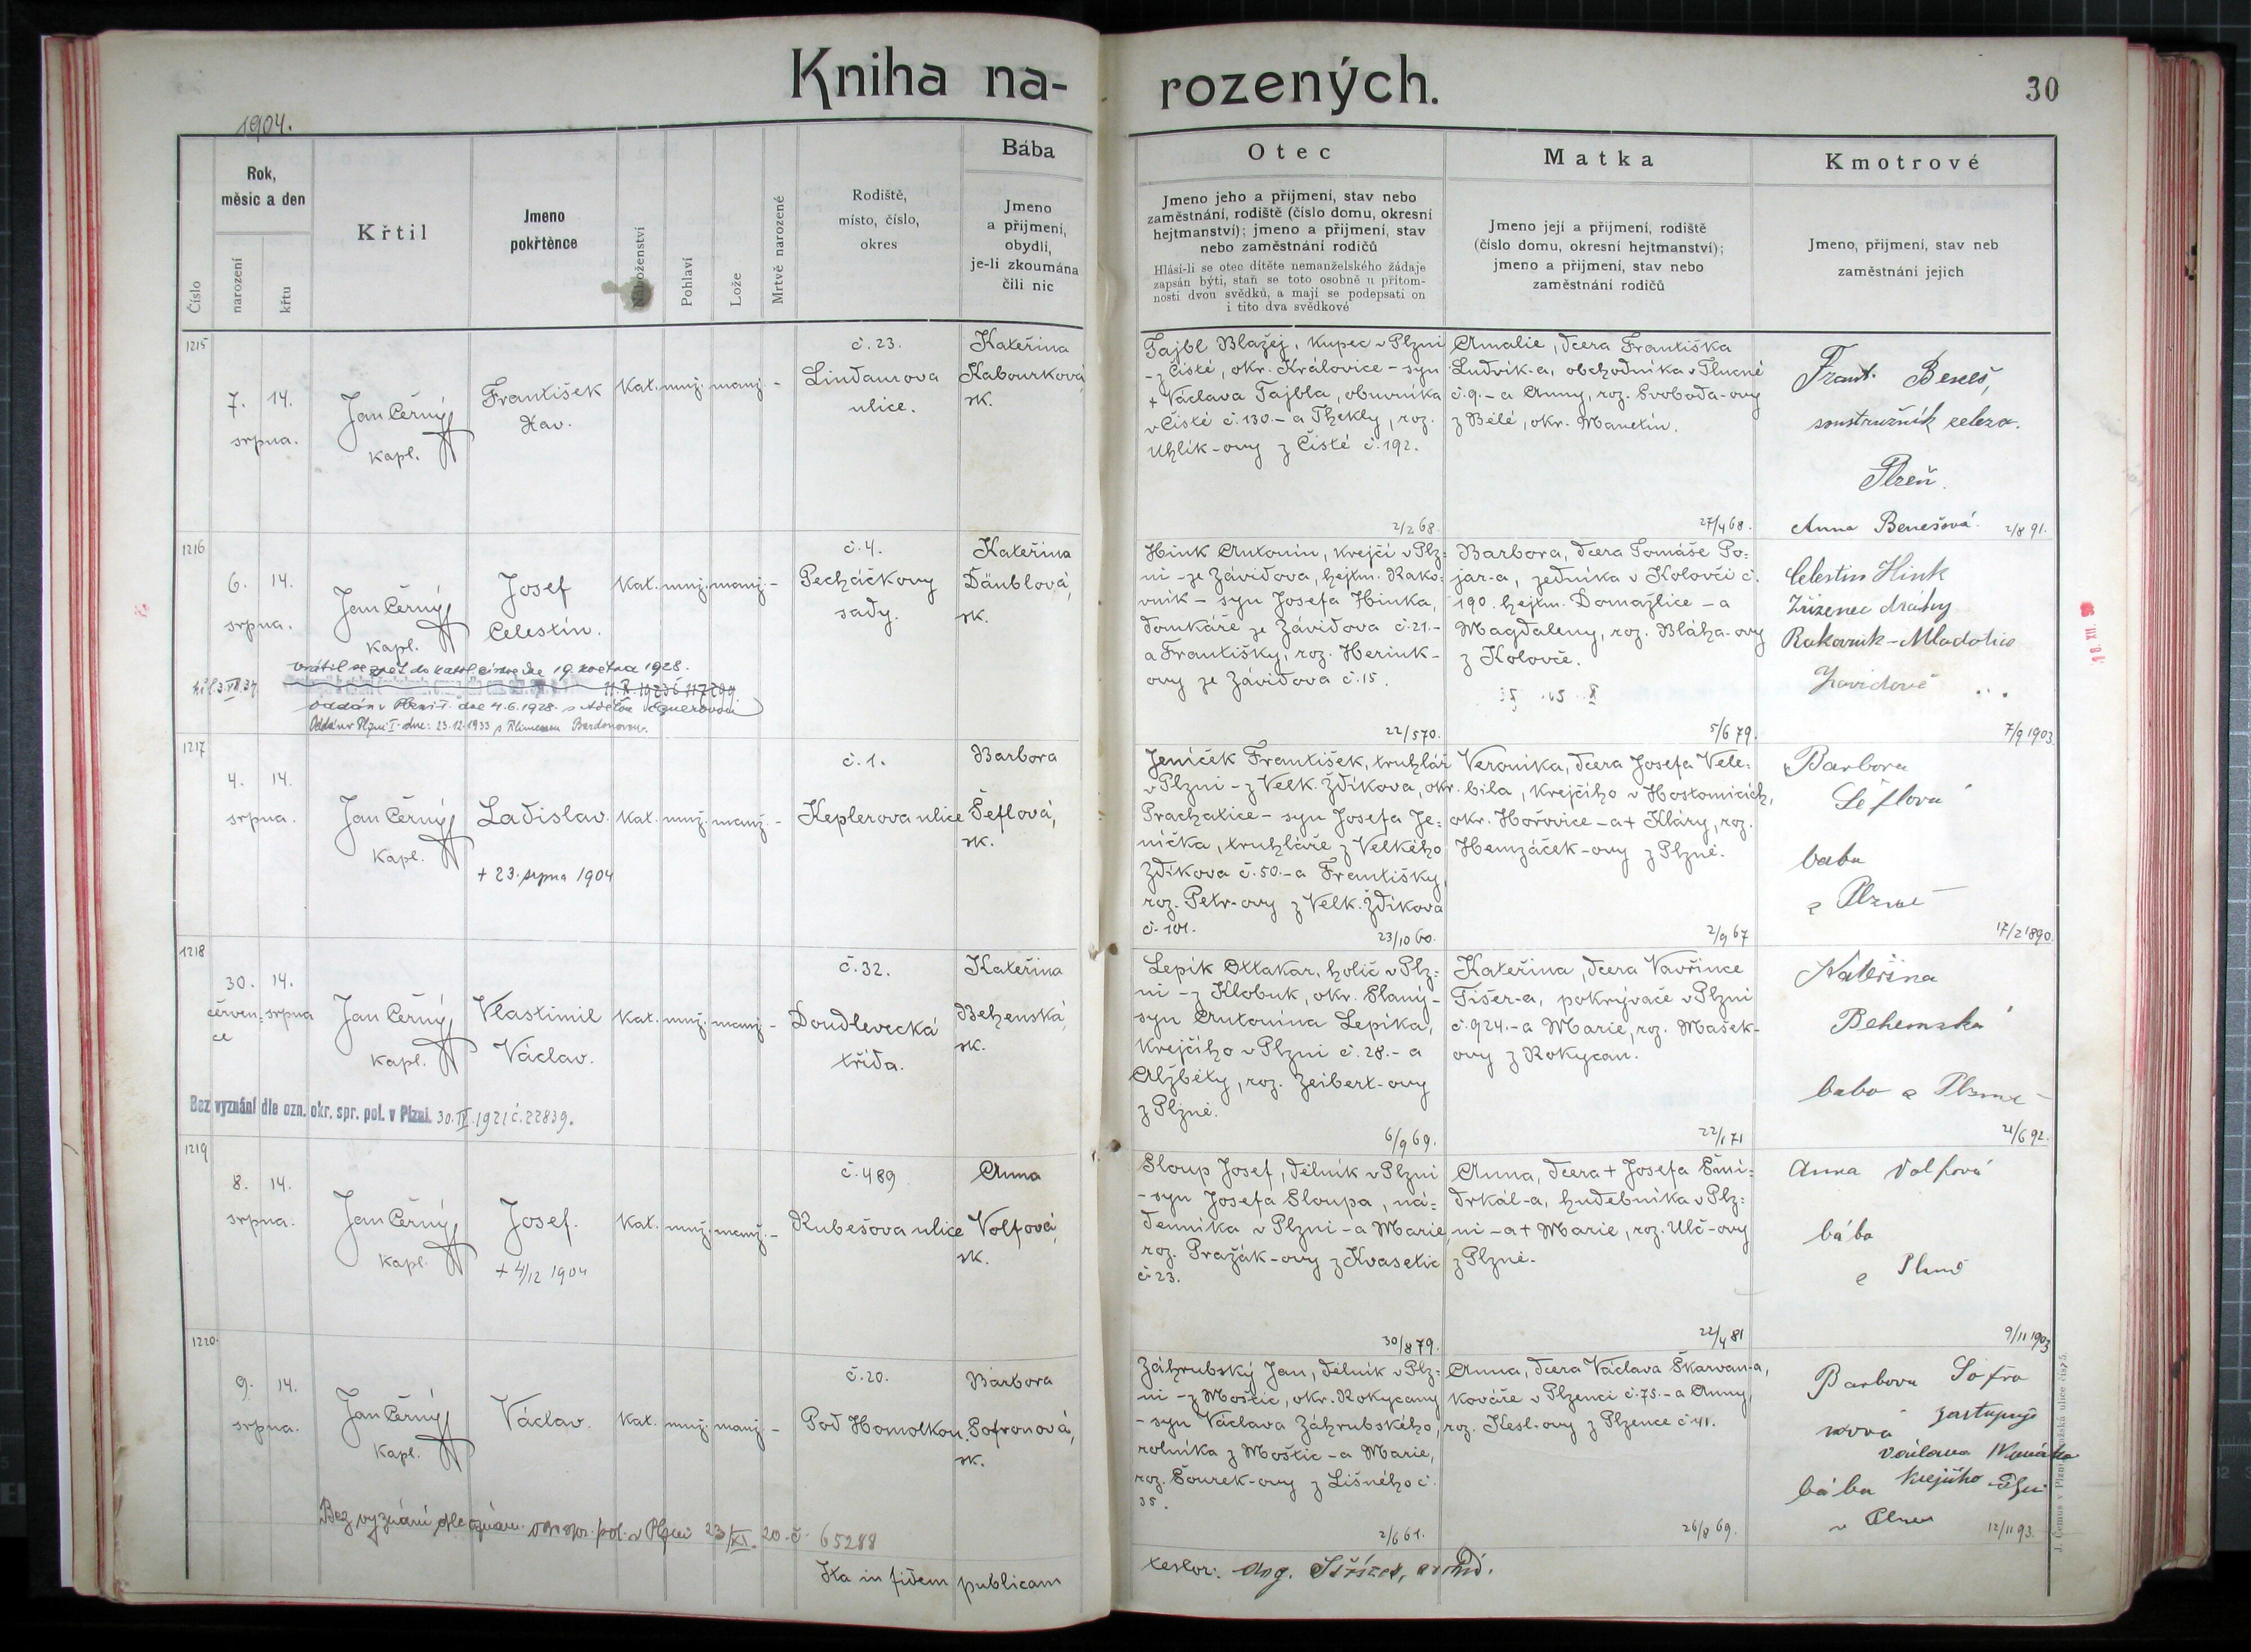 Kniha na-
rozených.
30
1904.
Číslo
Rok,
měsíc a den
narození
křtu
Křtil
Jmeno
pokřtěnce
Náboženství
Pohlaví
Lože
Mrtvě narozené
Rodiště,
místo, číslo,
okres
Bába
Jmeno
a příjmení,
obydlí,
je-li zkoumána
čili nic
Otec
Jmeno jeho a příjmení, stav nebo
zaměstnání, rodiště (číslo domu, okresní
hejtmanství); jmeno a příjmení, stav
nebo zaměstnání rodičů
Hlásí-li se otec dítěte nemanželského žádaje
zapsán býti, staň se toto osobně u přítom-
nosti dvou svědků, a mají se podepsati on
i tito dva svědkové
Matka
Jmeno její a příjmení, rodiště
(číslo domu, okresní hejtmanství);
jmeno a příjmení, stav nebo
zaměstnání rodičů
Kmotrové
Jmeno, příjmení, stav neb
zaměstnání jejich
1215
7. 14.
srpna.
Jan Černý
kapl.
František
Xav.
kat. muž. manž. -
č. 23.
Lindaurova
ulice.
Kateřina
Kabourková,
zk.
Tajbl Blažej, kupec v Plzni
- z Čisté, okr. Královice - syn
+ Václava Tajbla, obuvníka
v Čisté č. 130. - a Thekly, roz.
Uhlík-ovy z Čisté č. 192.
2/2 68.
Amalie, dcera Františka
Ludvík-a, obchodníka v Tlucné
č. 9. - a Anny, roz. Svoboda-ovy
z Bělé, okr. Manetín.
27/4 68.
Frant. Beneš,
soustružník železa.
Plzeň.
Anna Benešová. 2/8 91.
1216
6. 14.
srpna.
Jan Černý
kapl.
Josef
Celestin.
kat. muž. manž. -
č. 4.
Pecháčkovy
sady.
Kateřina
Däublová,
zk.
vrátil se zpět do katol. církve dne 19. května 1928.
oddán v Plzni I. dne 4.6.1928 s
Oddán v Plzni I. dne: 23.12.1933 s
Hink Antonín, krejčí v Plz-
ni - ze Závidova, hejtm. Rako-
vník - syn Josefa Hinka,
domkáře ze Závidova č. 21. -
a Františky, roz. Herink-
ovy ze Závidova č. 15.
22/5 70.
Barbora, dcera Tomáše Po-
jar-a, zedníka v Kolovči č.
190. hejtm. Domažlice - a
Magdaleny, roz. Bláha-ovy
z Kolovče.
5/6 79.
Celestin Hink
zřízenec dráhy
Rakovník-Mladotice
Závidově
7/9 1903
1217
4. 14.
srpna.
Jan Černý
kapl.
Ladislav.
+ 23. srpna 1904
kat. muž. manž. -
č. 1.
Keplerova ulice
Barbora
Šeflová,
zk.
Jeníček František, truhlář
v Plzni - z Velk. Zdíkova, okr.
Prachatice - syn Josefa Je-
níčka, truhláře z Velkého
Zdíkova č. 50. - a Františky,
roz. Petr-ovy z Velk. Zdíkova
č. 101.
23/10 60.
Veronika, dcera Josefa Vele-
bila, krejčího v Hostomicích,
okr. Hořovice - a + Kláry, roz.
Hemzáček-ovy z Plzně.
2/9 67
Barbora
Šeflová
bába
z Plzně
17/2 1890.
1218
30. 14.
červen- srpna
ce
Jan Černý
kapl.
Vlastimil
Václav.
kat. muž. manž. -
č. 32.
Doudlevecká
třída.
Kateřina
Behenská,
zk.
Bez vyznání dle ozn. okr. spr. pol. v Plzni. 30. IV. 1921 č. 22839.
Lepík Ottakar, holič v Plz-
ni - z Klobuk, okr. Slaný -
syn Antonína Lepíka,
krejčího v Plzni č. 28. - a
Alžběty, roz. Zeibert-ovy
z Plzně.
6/9 69.
Kateřina, dcera Vavřince
Fišer-a, pokrývače v Plzni
č. 924. - a Marie, roz. Mašek-
ovy z Rokycan.
22/1 71
Kateřina
Behenská
bába z Plzně
21/6 92.
1219
8. 14.
srpna.
Jan Černý
kapl.
Josef.
+ 4/12 1904
kat. muž. manž. -
č. 489
Rubešova ulice
Anna
Volfová,
zk.
Sloup Josef, dělník v Plzni
- syn Josefa Sloupa, ná-
denníka v Plzni - a Marie,
roz. Pražák-ovy z Kvasetic
č. 23.
30/8 79.
Anna, dcera + Josefa Šmi-
drkál-a, hudebníka v Plz-
ni - a + Marie, roz. Ulč-ovy
z Plzně.
22/4 81
Anna Volfová
bába
z Plzně
9/11 1903
1220.
9. 14.
srpna.
Jan Černý
kapl.
Václav.
kat. muž. manž. -
č. 20.
Pod Homolkou.
Barbora
Sofronová,
zk.
Bez vyznání dle oznám. okr. spr. pol. v Plzni 23/XI. 20. č. 65288
Záhrubský Jan, dělník v Plz-
ni - z Moštic, okr. Rokycany
- syn Václava Záhrubského,
rolníka z Moštic - a Marie,
roz. Šourek-ovy z Lišného č.
35.
2/6 61.
Anna, dcera Václava Škarvan-a,
kováře v Plzenci č. 75. - a Anny,
roz. Kesl-ovy z Plzence č. 41.
26/8 69.
Barbora Sofro
nová zastupuje
Václava
bába krejčího Plzni
v Plzni
12/11 93.
Ita in fidem publicam
testor: